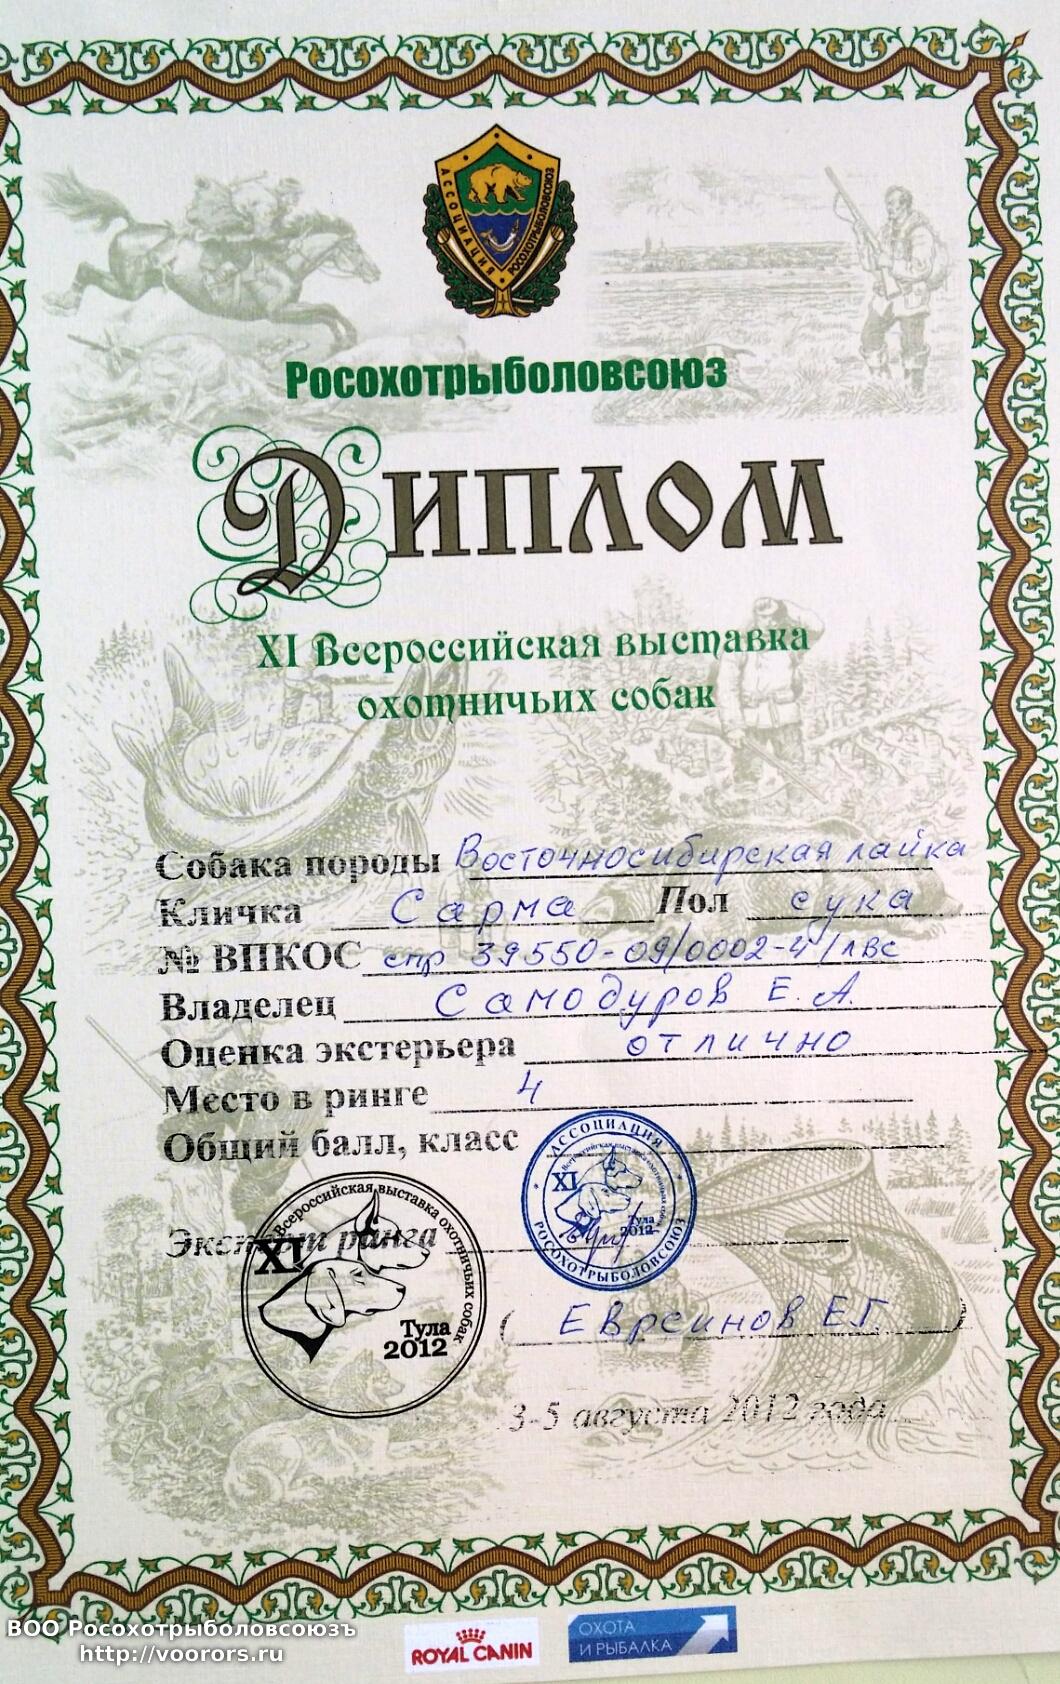 АССОЦИАЦИЯ • РОСОХОТРЫБОЛОВСОЮЗ
Росохотрыболовсоюз
Диплом
XI Всероссийская выставка
охотничьих собак
Собака породы Восточносибирская лайка
Кличка Сарма Пол сука
№ ВПКОС спр 39550-09/0002-4/лвс
Владелец Самодуров Е. А.
Оценка экстерьера отлично
Место в ринге 4
Общий балл, класс
АССОЦИАЦИЯ
РОСОХОТРЫБОЛОВСОЮЗ
Всероссийская выставка охотничьих собак
XI
Тула
2012
Эксперт ринга
Всероссийская выставка охотничьих собак
XI
Тула
2012
( Евреинов Е.Г. )
3-5 августа 2012 года
ВОО Росохотрыболовсоюзъ
http://voorors.ru
ROYAL CANIN
ОХОТА
И РЫБАЛКА